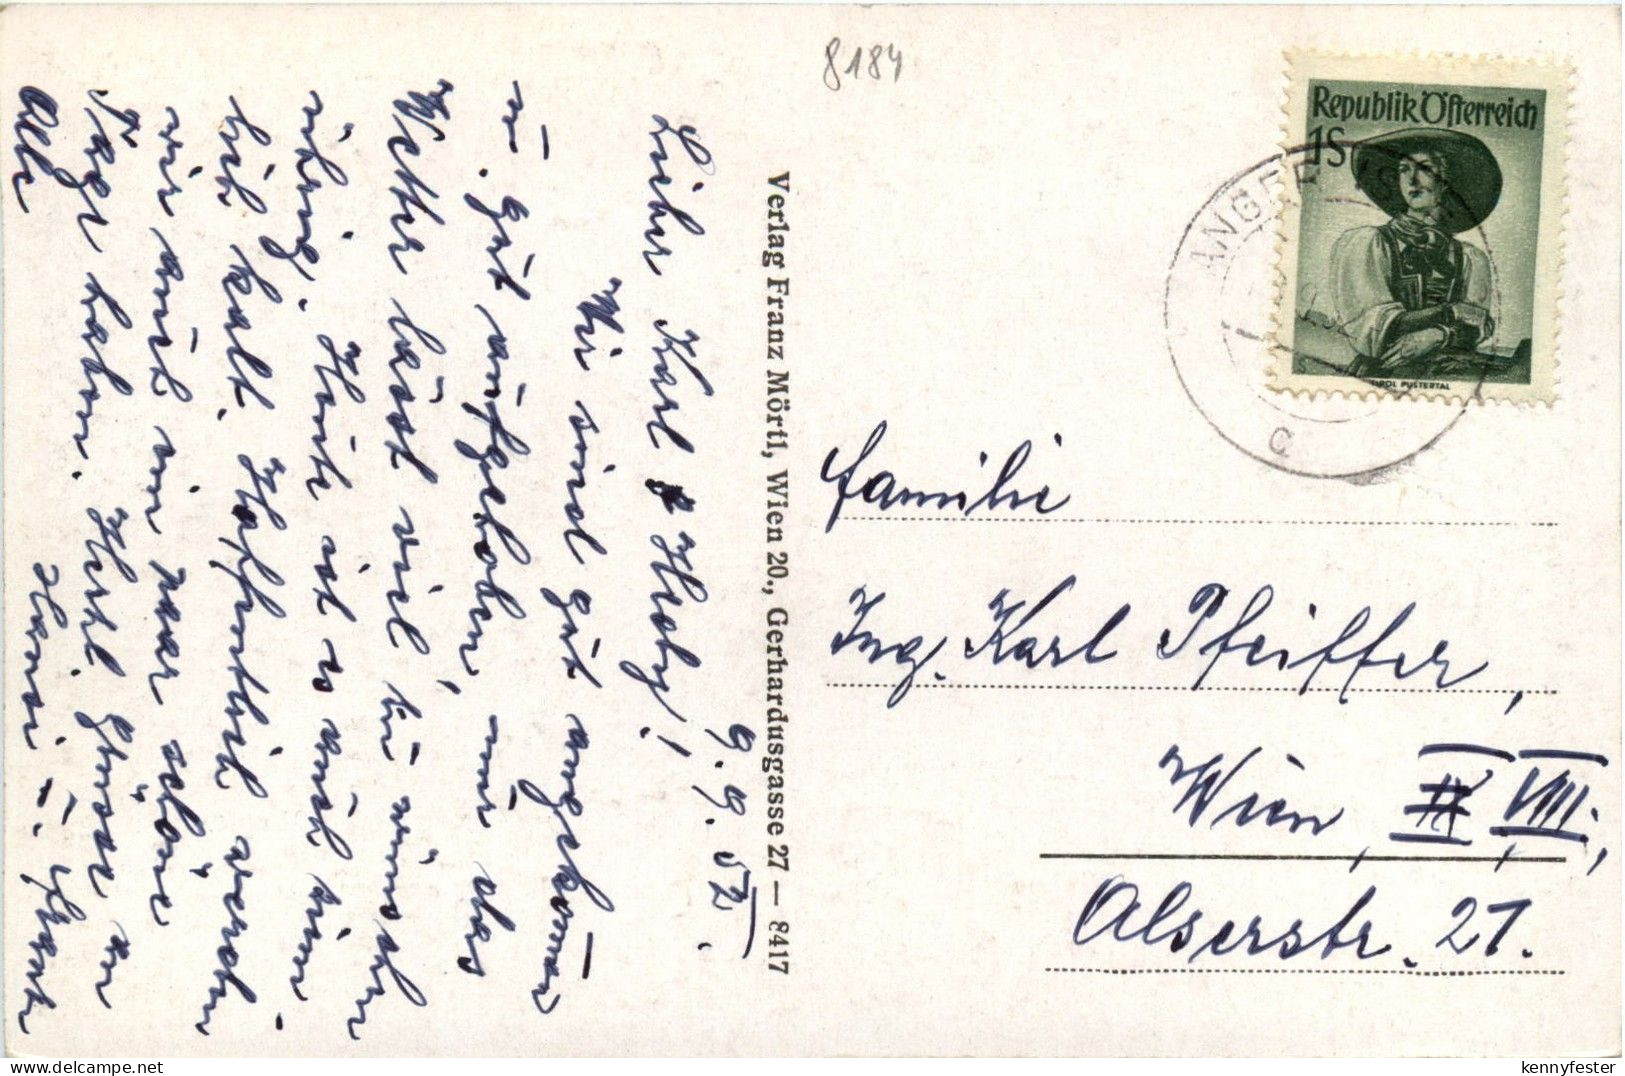 8184
Republik Österreich
1S
TIROL PUSTERTAL
ANGER
C
9. 9. 52.
Lieber Karl & Hedy!
Wir sind gut angekom̄en
ū. gut aufgehoben, nur das
Wetter lässt viel zu wünschen
übrig. Heute ist es auch ziem-
lich kalt. Hoffentlich werden
wir auch ein paar schöne
Tage haben. Herzl. Grüsse an
Alle
Hansi ū.
Verlag Franz Mörtl, Wien 20., Gerhardusgasse 27 — 8417
Familie
Ing. Karl Pfeiffer,
Wien, VIII.,
Alserstr. 21.
kennyfester